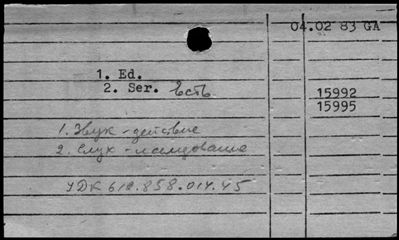 04.02 83 GA
1. Ed.
2. Ser. Есть
15992
15995
1. Звук - действие
2. Слух - исследование
УДК 612.858.014.45